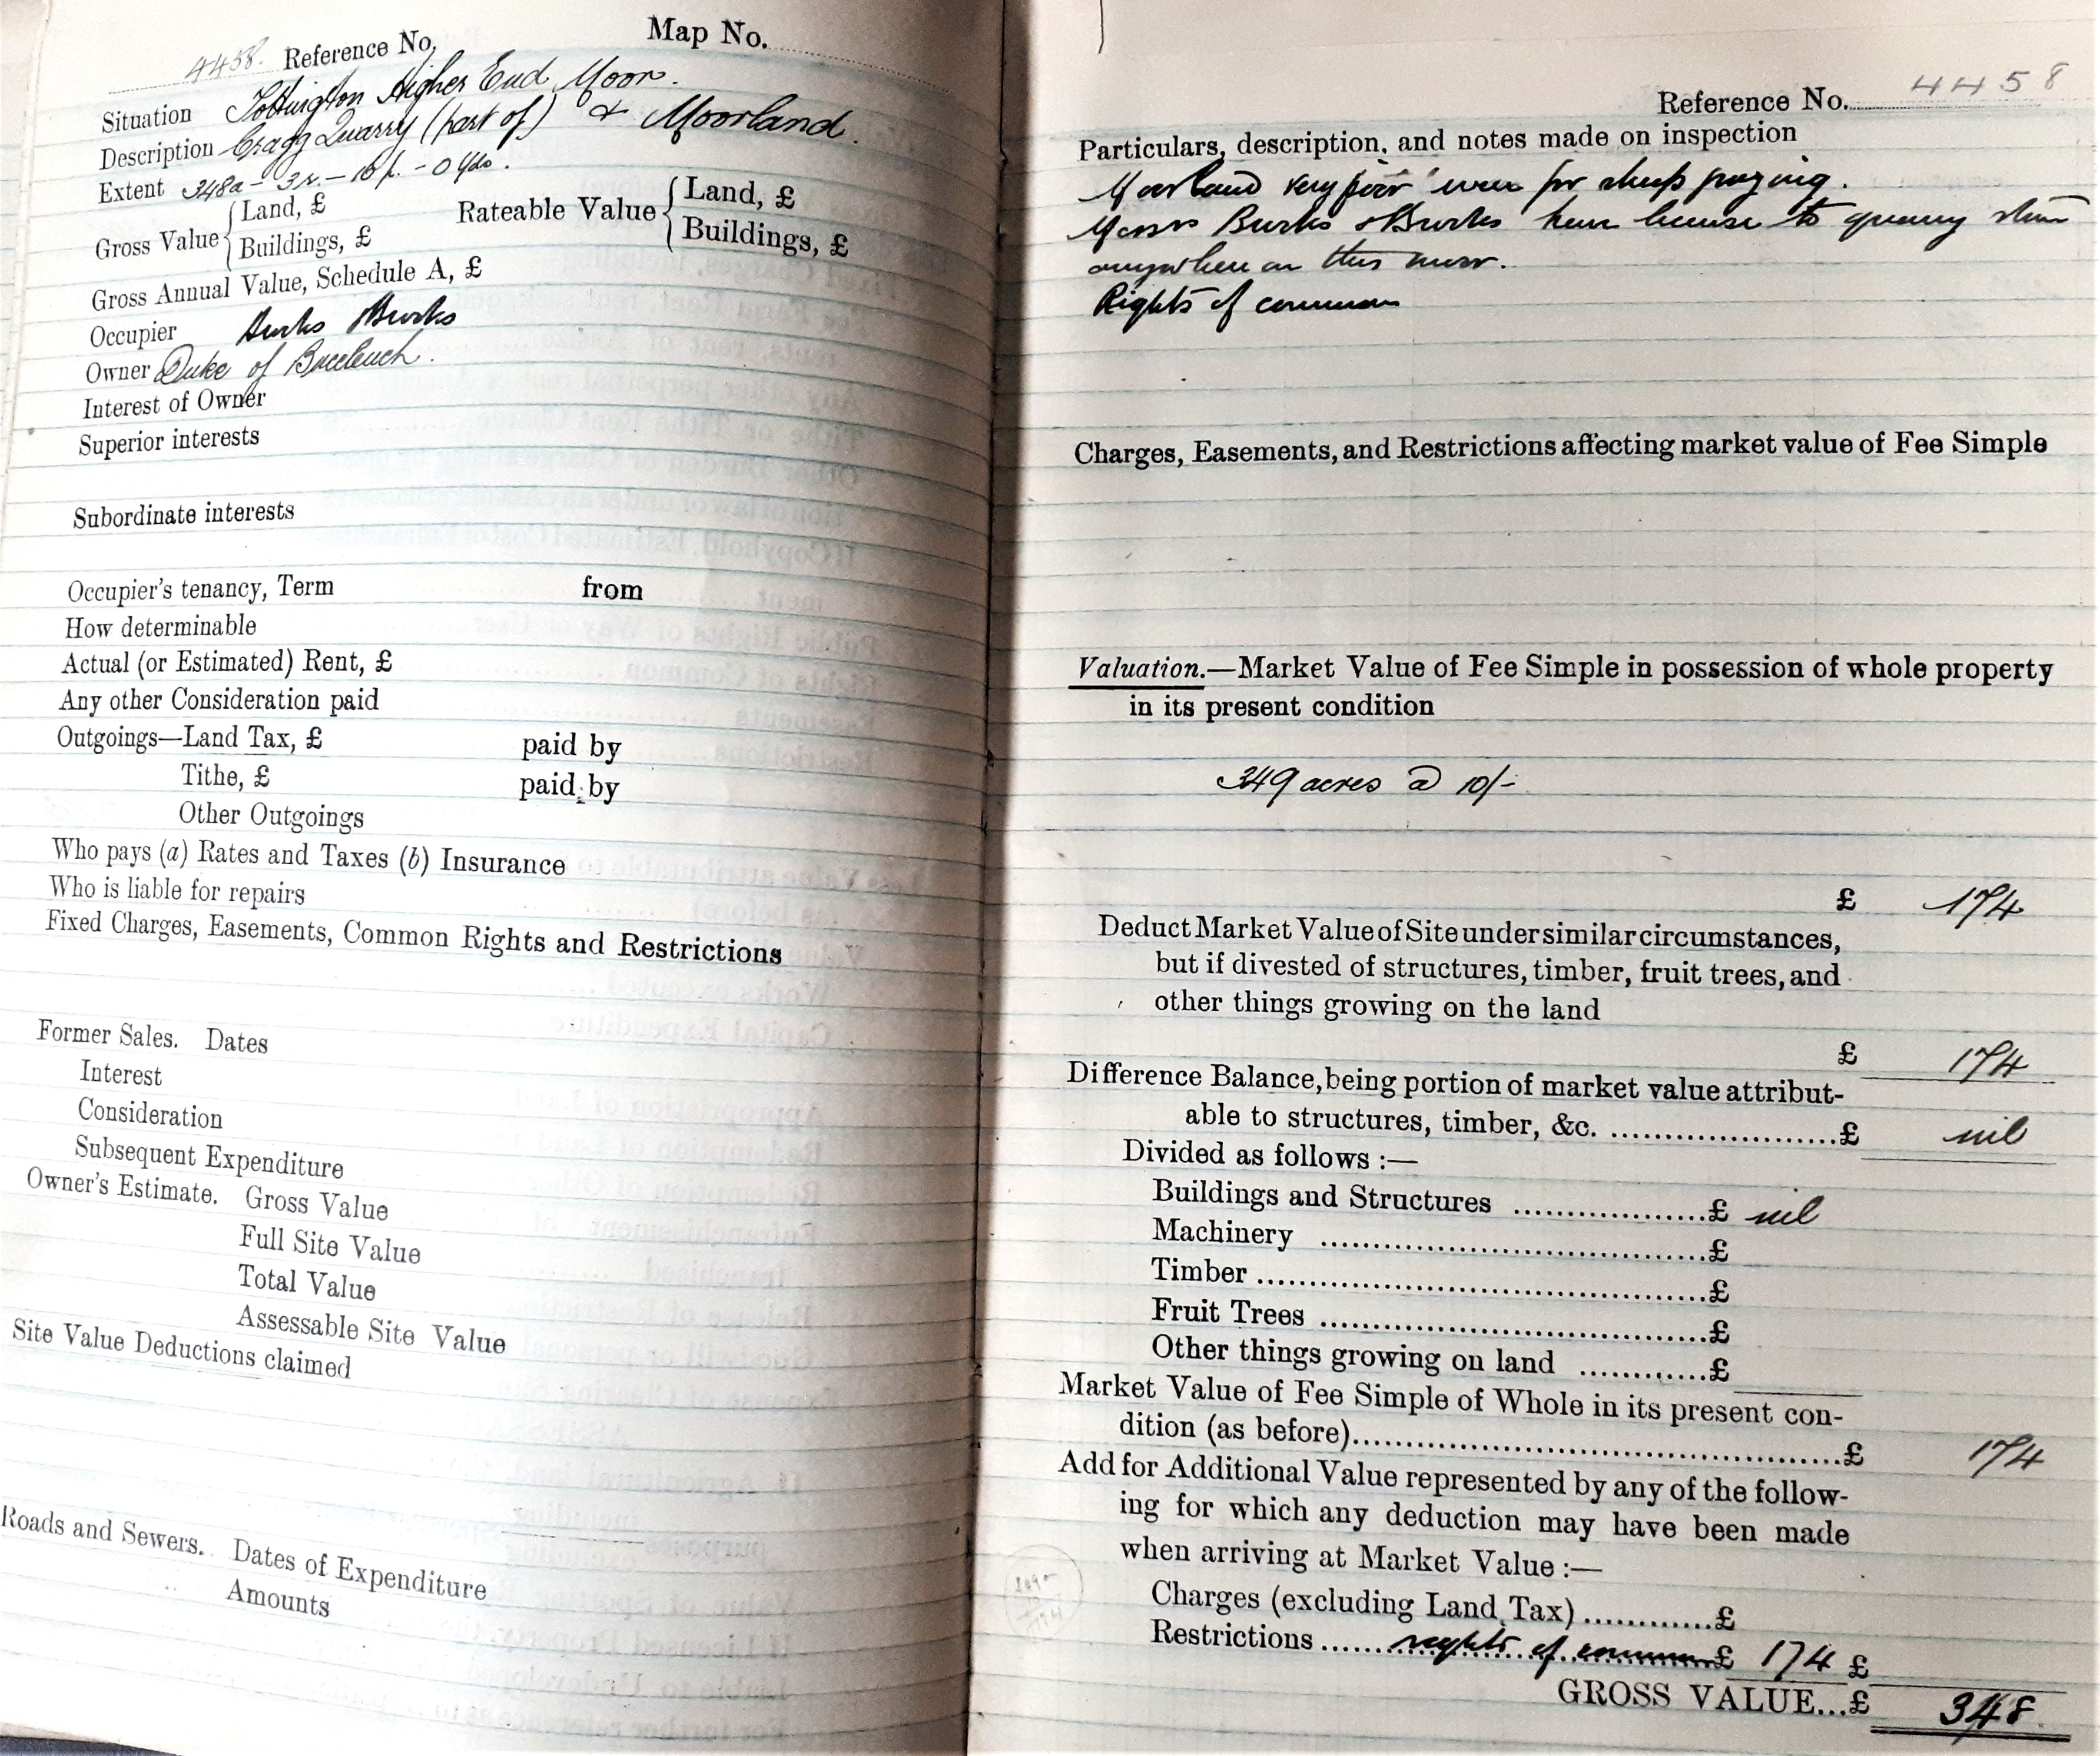 4458. Reference No. Map No.
Situation Tottington Higher End Moor.
Description Cragg Quarry (part of) & Moorland.
Extent 348a - 3r. - 16p. - 0 yds.
Gross Value { Land, £ Rateable Value { Land, £
Buildings, £ Buildings, £
Gross Annual Value, Schedule A, £
Occupier
Owner Duke of Buccleuch.
Interest of Owner
Superior interests
Subordinate interests
Occupier's tenancy, Term from
How determinable
Actual (or Estimated) Rent, £
Any other Consideration paid
Outgoings—Land Tax, £ paid by
Tithe, £ paid by
Other Outgoings
Who pays (a) Rates and Taxes (b) Insurance
Who is liable for repairs
Fixed Charges, Easements, Common Rights and Restrictions
Former Sales. Dates
Interest
Consideration
Subsequent Expenditure
Owner's Estimate. Gross Value
Full Site Value
Total Value
Assessable Site Value
Site Value Deductions claimed
Roads and Sewers. Dates of Expenditure
Amounts
Reference No. 4458
Particulars, description, and notes made on inspection
Moorland very poor even for sheep grazing.
Messrs have license to quarry stone
anywhere on this moor.
Rights of common
Charges, Easements, and Restrictions affecting market value of Fee Simple
Valuation.—Market Value of Fee Simple in possession of whole property
in its present condition
349 acres @ 10/-
£ 174
Deduct Market Value of Site under similar circumstances,
but if divested of structures, timber, fruit trees, and
other things growing on the land
£ 174
Difference Balance, being portion of market value attribut-
able to structures, timber, &c. £ nil
Divided as follows :—
Buildings and Structures £ nil
Machinery £
Timber £
Fruit Trees £
Other things growing on land £
Market Value of Fee Simple of Whole in its present con-
dition (as before) £ 174
Add for Additional Value represented by any of the follow-
ing for which any deduction may have been made
when arriving at Market Value :—
Charges (excluding Land Tax) £
Restrictions rights of common £ 174 £
GROSS VALUE...£ 348